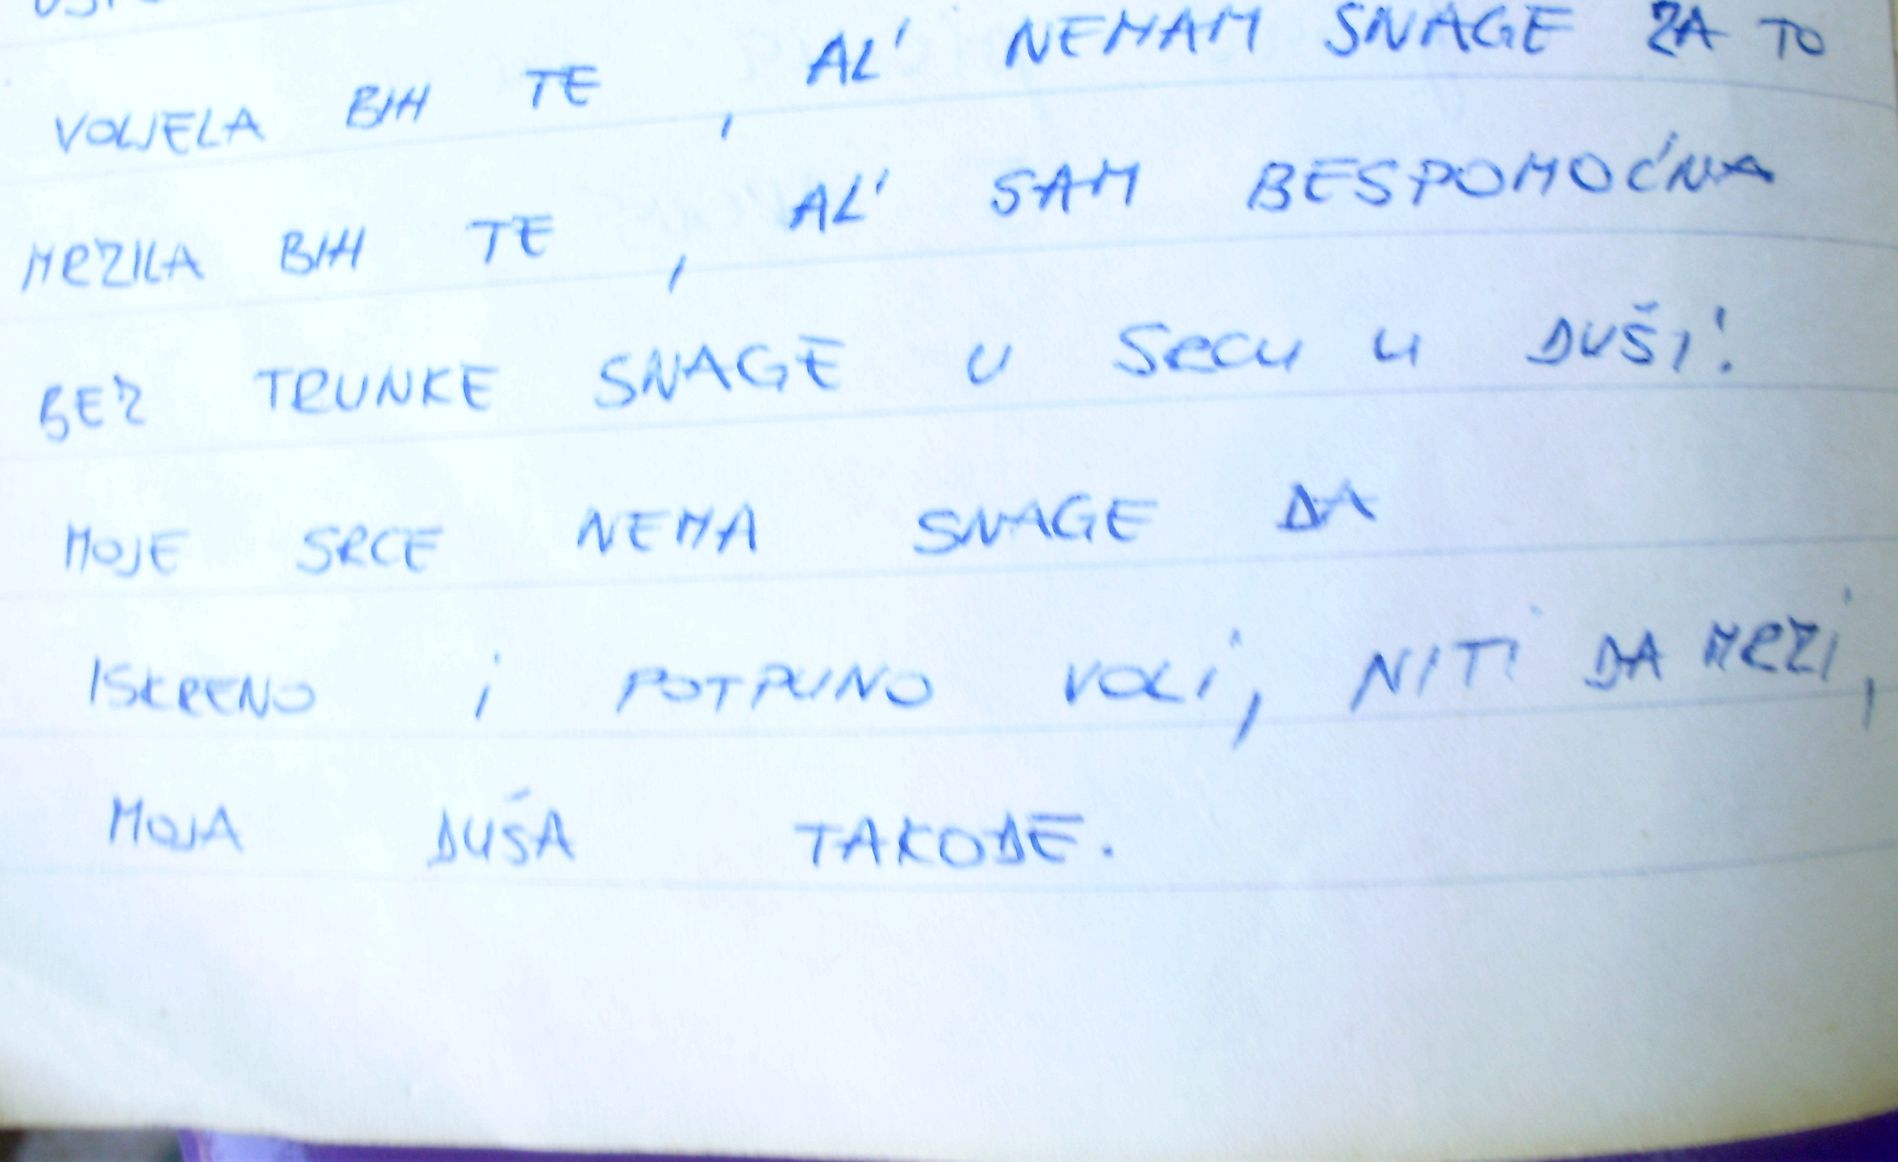 VOLJELA BIH TE, AL' NEMAM SNAGE ZA TO
MRZILA BIH TE, AL' SAM BESPOMOĆNA
BEZ TRUNKE SNAGE U SRCU U DUŠI!
MOJE SRCE NEMA SNAGE DA
ISKRENO i POTPUNO VOLi, NITi DA MRZi,
MOJA DUŠA TAKOĐE.